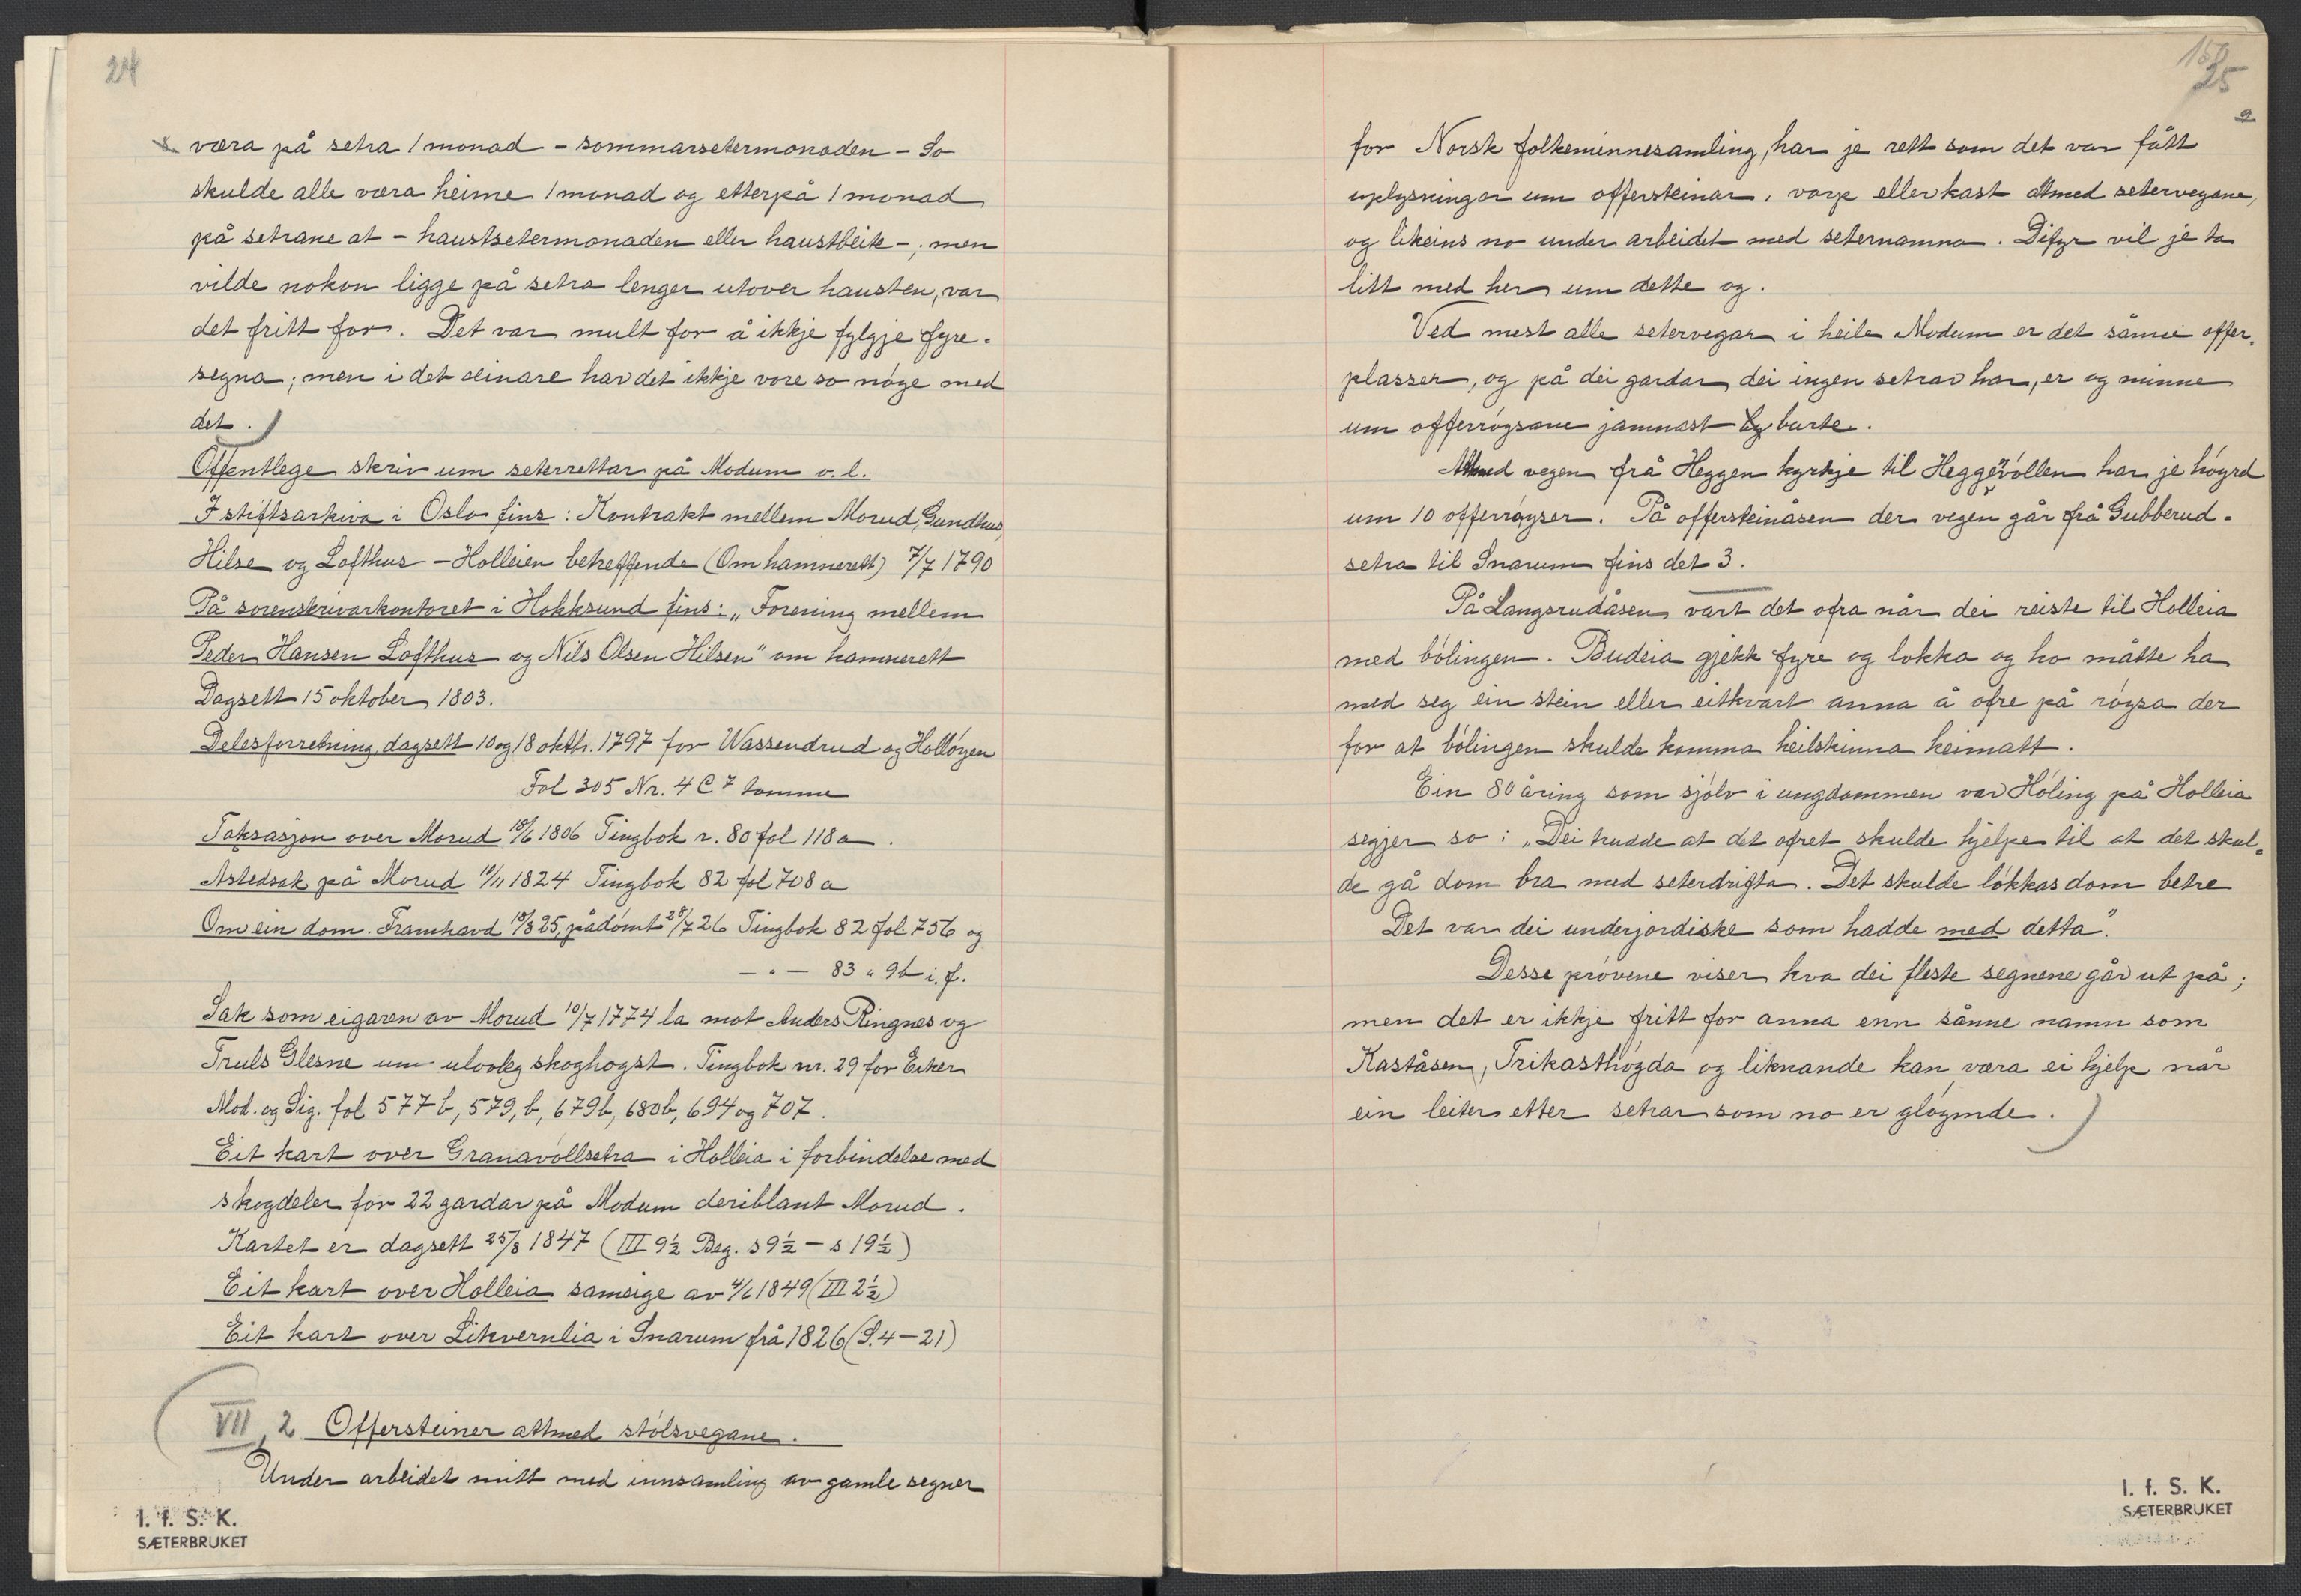 24
være på setra 1 monad – sommarsetermonaden – So
skulde alle være heime 1 monad og etterpå 1 monad
på setrane at – haustsetermonaden eller haustbeite –; men
vilde nokon ligge på setra lenger utover hausten, var
det fritt for. Det var mult for å ikkje fylgje fyre-
segna; men i det seinare har det ikkje vore so nøge med
det.)
Offentlege skriv um seterrettar på Modum o.l.
I stiftsarkiva i Oslo fins: Kontrakt mellem Morud, Gundhus,
Hilse og Lofthus – Holleien betreffende (Om hamnerett) 7/7 1790
På sorenskrivarkontoret i Hokksund fins: „Forening mellem
Peder Hansen Lofthus og Nils Olsen Hilsen" om hamnerett
Dagsett 15 oktober 1803.
Delesforretning dagsett 10 og 18 oktbr. 1797 for Wassendrud og Holløyen
Fol 305 Nr. 4 C 7 tomme
Taksasjon over Morud 18/6 1806 Tingbok n. 80 fol 118 a.
Åstedsak på Morud 10/11 1824 Tingbok 82 fol 708 a
Om ein dom. Framhavd 18/3 25, pådømt 28/7 26 Tingbok 82 fol. 756 og
– " – 83 " 9b i.f.
Sak som eigaren av Morud 10/7 1774 la mot Anders Ringnes og
Truls Glesne um ulovleg skoghogst. Tingbok nr. 29 for Eiker
Mod. og Sig. fol 577 b, 579, b, 679 b, 680 b, 694 og 707.
Eit kart over Granavollsetra i Holleia i forbindelse med
skogdeler for 22 gardar på Modum deriblant Morud.
Kartet er dagsett 25/8 1847 (III 9½ Beg. s 9½ – s 19½)
Eit kart over Holleia sameige av 4/6 1849 (III 2½)
Eit kart over Likvernlia i Snarum frå 1826 (S. 4 – 21)
VII, 2 Offersteiner attmed stølsvegane.
Under arbeidet mitt med innsamling av gamle segner
I. f. S. K.
SÆTERBRUKET
25
for Norsk folkeminnesamling, har je rett som det var fått
uplysningar um offersteinar, varp eller kast attmed setervegane,
og likeins no under arbeidet med seternamna. Difyr vil je ta
litt med her um dette og.
Ved mest alle setervegar i heile Modum er det sånne offer-
plasser, og på dei gardar dei ingen setrar har, er og minne
um offerrøysane jamnast burte.
Attmed vegen frå Heggen kyrkje til Heggevollen har je høyrd
um 10 offerrøyser. På offersteinåsen der vegen går frå Gubberud-
setra til Snarum fins det 3.
På Langerudåsen vart det ofra når dei reiste til Holleia
med bølingen. Budeia gjekk fyre og lokka og ho måtte ha
med seg ein stein eller eitkvart anna å ofre på røysa der
for at bølingen skulde komma heilskinna heimatt.
Ein 80 åring som sjølv i ungdommen var Høling på Holleia
segjer so: „Dei trudde at det ofret skulde hjelpe til at det skul-
de gå dom bra med seterdrifta. Det skulde løkkas dom betre
Det var dei underjordiske som hadde med detta".
Desse prøvene viser kva dei fleste segnene går ut på;
men det er ikkje fritt for anna enn sånne namn som
Kaståsen, Trikasthøgda og liknande kan være ei hjelp når
ein leiter etter setrar som no er gløymde.)
I. f. S. K.
SÆTERBRUKET